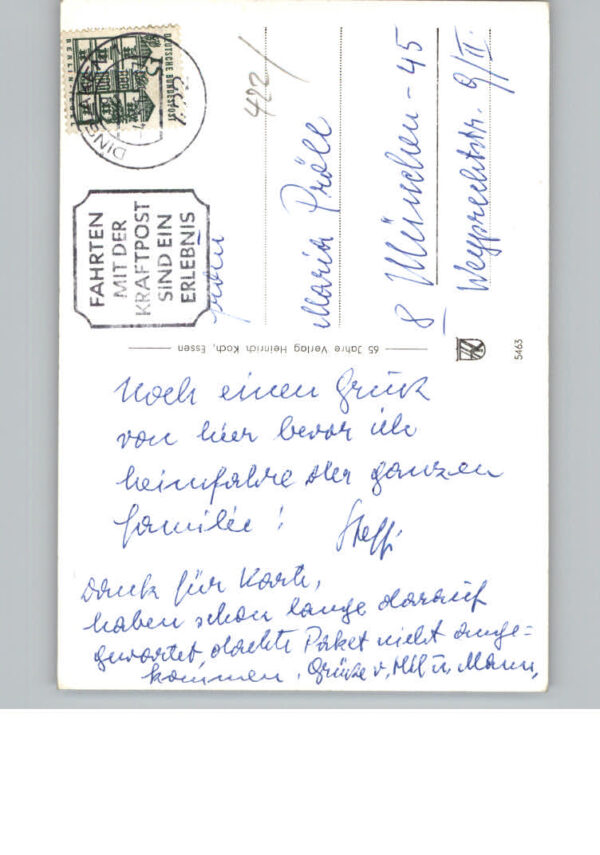 Noch einen Gruß
von hier bevor ich
heimfahre der ganzen
Familie! Steffi
Dank für Karte,
haben schon lange darauf
gewartet, dachte Paket nicht ange=
kommen. Grüße v. u. Mann,
422/
Maria Pröll
8 München-45
Weyprechtstr. 9/II.
FAHRTEN
MIT DER
KRAFTPOST
SIND EIN
ERLEBNIS
DEUTSCHE BUNDESPOST
15
BERLIN
DING
65 Jahre Verlag Heinrich Koch, Essen
5463